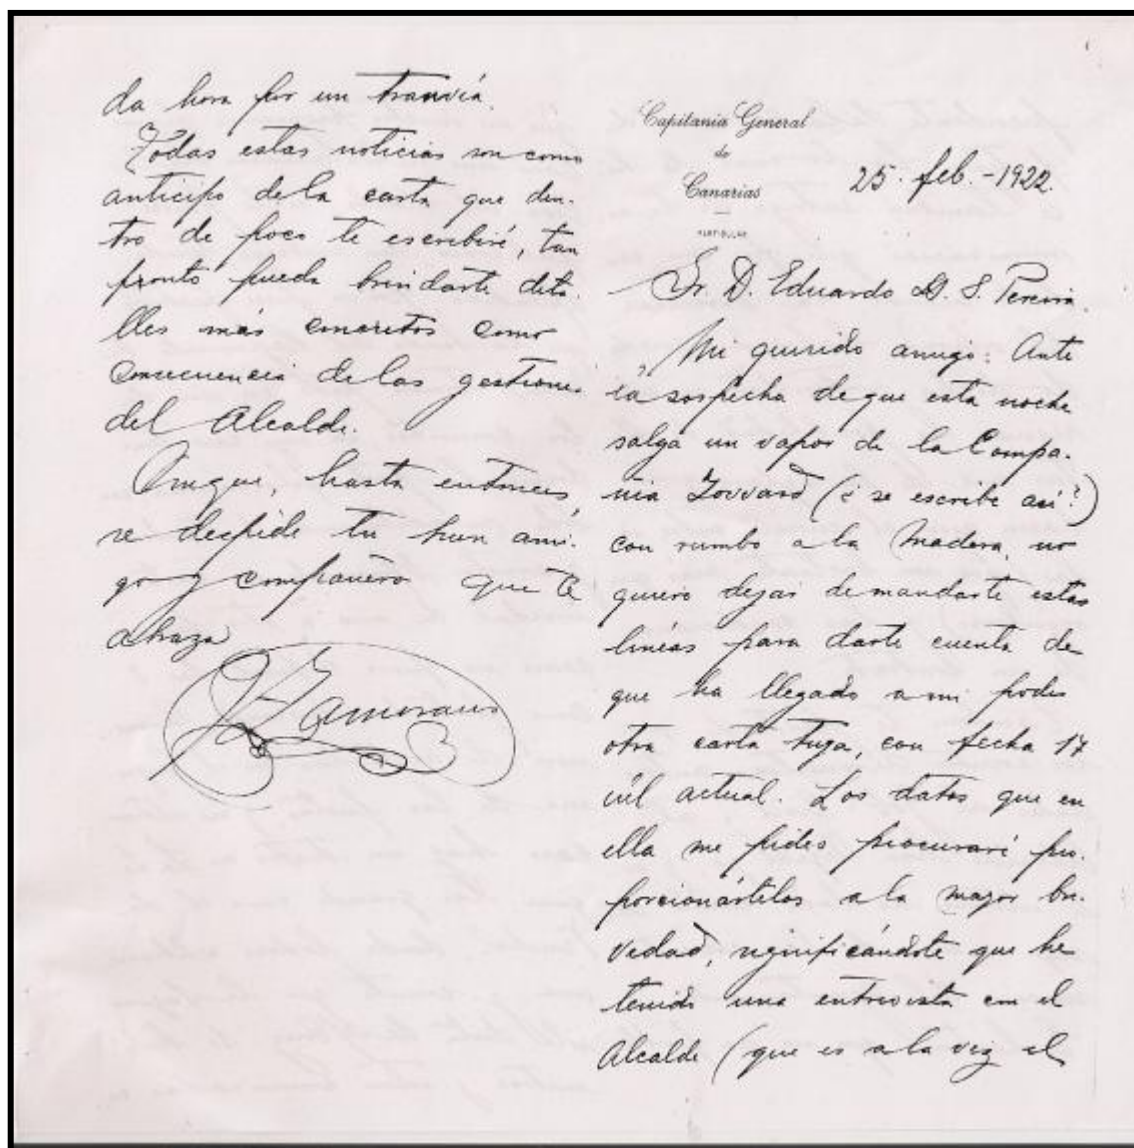 da hora por un tranvía.
Todas estas noticias son como
anticipo de la carta que den-
tro de poco te escribiré, tan
pronto pueda brindarte deta-
lles más concretos como
consecuencia de las gestiones
del Alcalde.
Conque, hasta entonces,
se despide tu buen ami-
go y compañero que te
abraza
Zamorano
Capitanía General
de
Canarias
PARTICULAR
25. feb. - 1922.
Sr. D. Eduardo S. Pereira.
Mi querido amigo: Ante
la sospecha de que esta noche
salga un vapor de la Compa-
ñia (¿se escribe así?)
con rumbo a la Madera, no
quiero dejar de mandarte estas
líneas para darte cuenta de
que ha llegado a mi poder
otra carta tuya, con fecha 17
del actual. Los datos que en
ella me pides procuraré pro-
porcionártelos a la mayor bre-
vedad, significándote que he
tenido una entrevista con el
Alcalde (que es a la vez el